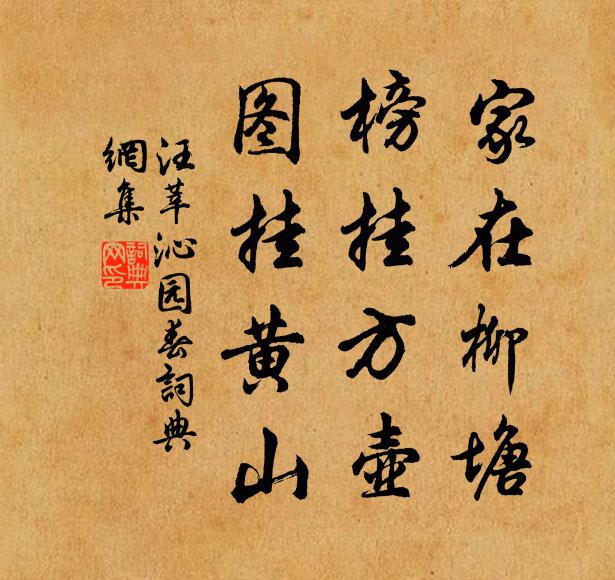 家在柳塘
榜挂方壶
图挂黄山
汪莘沁园春詞典
網集
詞典
网印